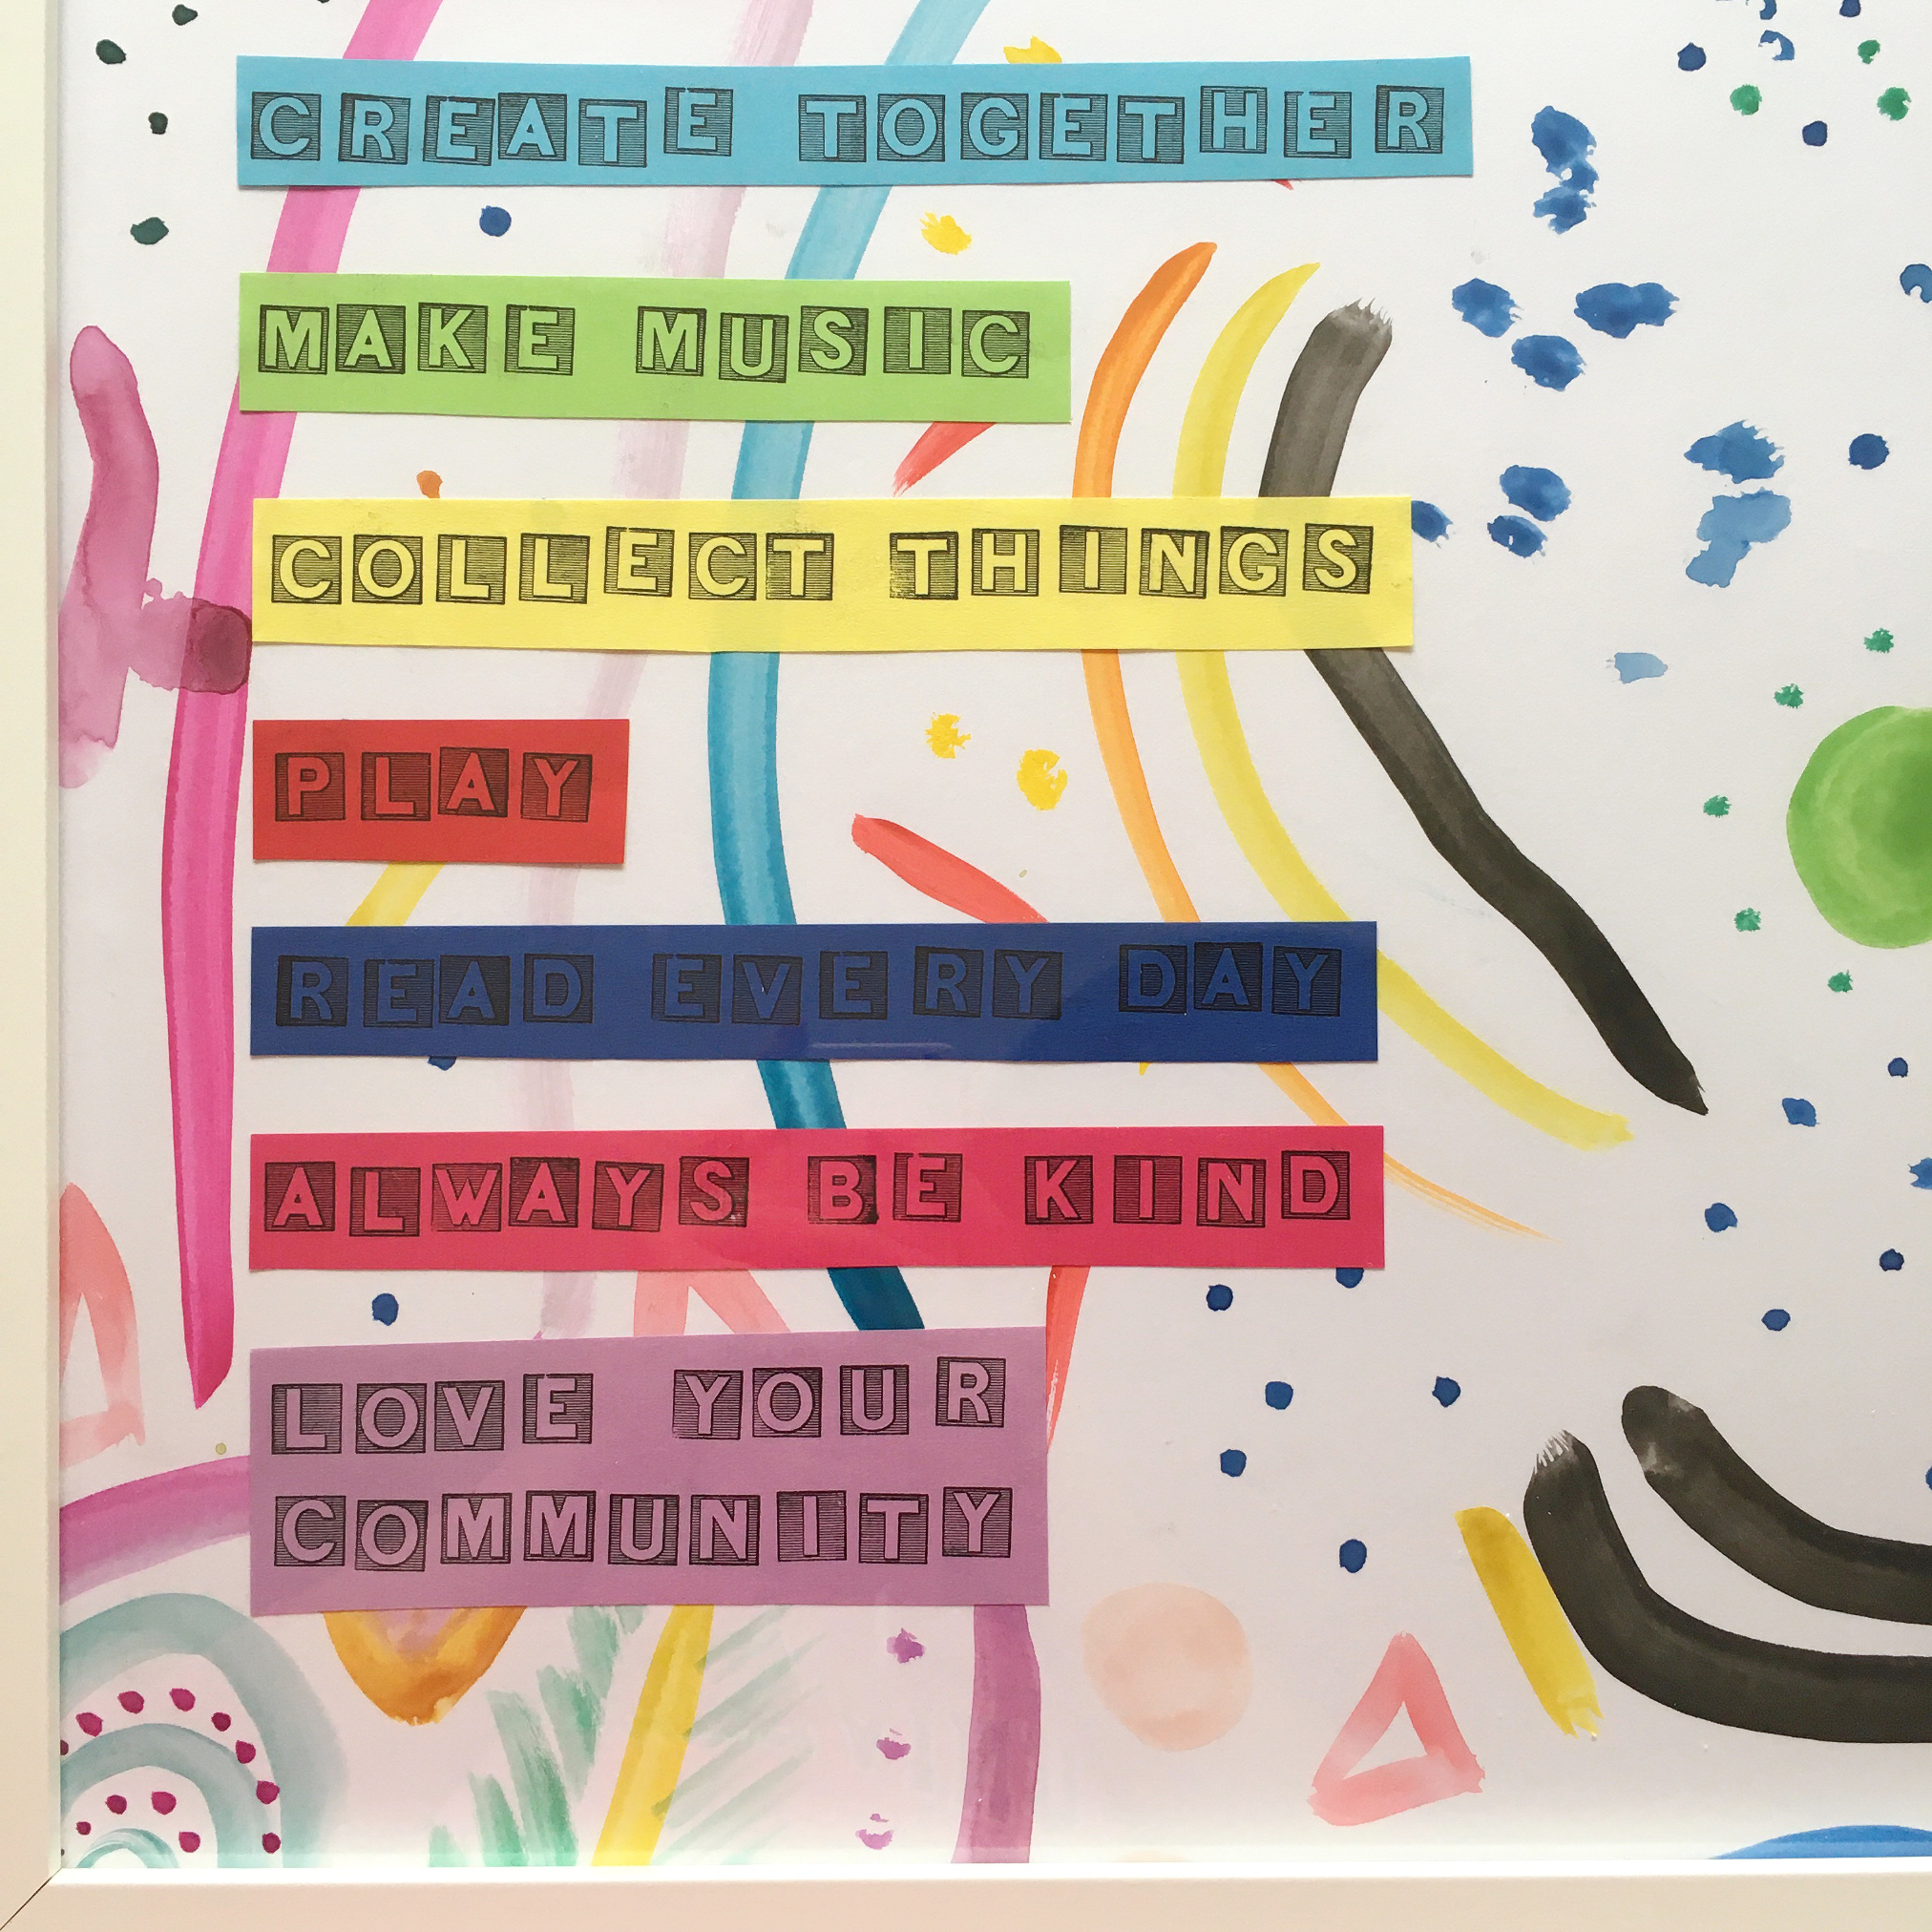 CREATE TOGETHER
MAKE MUSIC
COLLECT THINGS
PLAY
READ EVERY DAY
ALWAYS BE KIND
LOVE YOUR
COMMUNITY